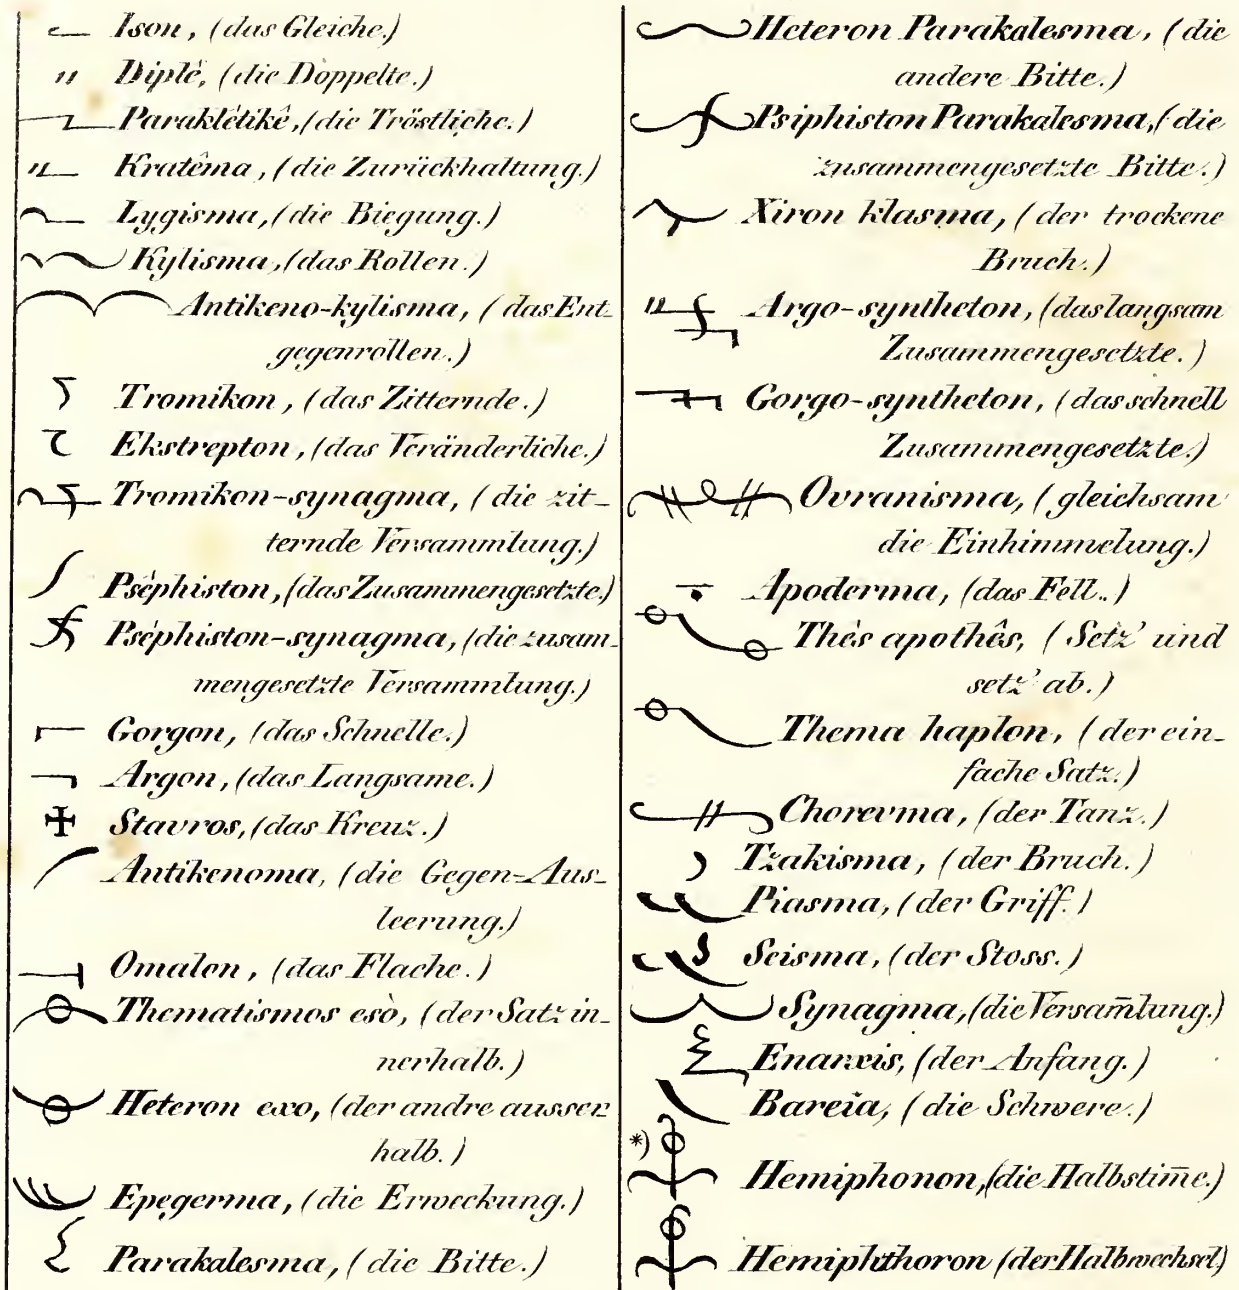 Ison, (das Gleiche.)
Diplê, (die Doppelte.)
Paraklêtikê, (die Tröstliche.)
Kratêma, (die Zurückhaltung.)
Lygisma, (die Biegung.)
Kylisma, (das Rollen.)
Antikeno-kylisma, (das Ent-
gegenrollen.)
Tromikon, (das Zitternde.)
Ekstrepton, (das Veränderliche.)
Tromikon-synagma, (die zit-
ternde Versammlung.)
Psêphiston, (das Zusammengesetzte.)
Psêphiston-synagma, (die zusam-
mengesetzte Versammlung.)
Gorgon, (das Schnelle.)
Argon, (das Langsame.)
Stavros, (das Kreuz.)
Antikenoma, (die Gegen-Aus-
leerung.)
Omalon, (das Flache.)
Thematismos esò, (der Satz in-
nerhalb.)
Heteron exo, (der andre ausser
halb.)
Epegerma, (die Erweckung.)
Parakalesma, (die Bitte.)
Heteron Parakalesma, (die
andere Bitte.)
Psiphiston Parakalesma, (die
zusammengesetzte Bitte.)
Xiron klasma, (der trockene
Bruch.)
Argo-syntheton, (das langsam
Zusammengesetzte.)
Gorgo-syntheton, (das schnell
Zusammengesetzte.)
Ovranisma, (gleichsam
die Einhimmelung.)
Apoderma, (das Fell..)
Thês apothês, (Setz' und
setz' ab.)
Thema haplon, (der ein-
fache Satz.)
Chorevma, (der Tanz.)
Tzakisma, (der Bruch.)
Piasma, (der Griff.)
Seisma, (der Stoss.)
Synagma, (die Versam̄lung.)
Enarxis, (der Anfang.)
Bareia, (die Schwere.)
*)
Hemiphonon, (die Halbstim̄e.)
Hemiphthoron (der Halbwechsel)